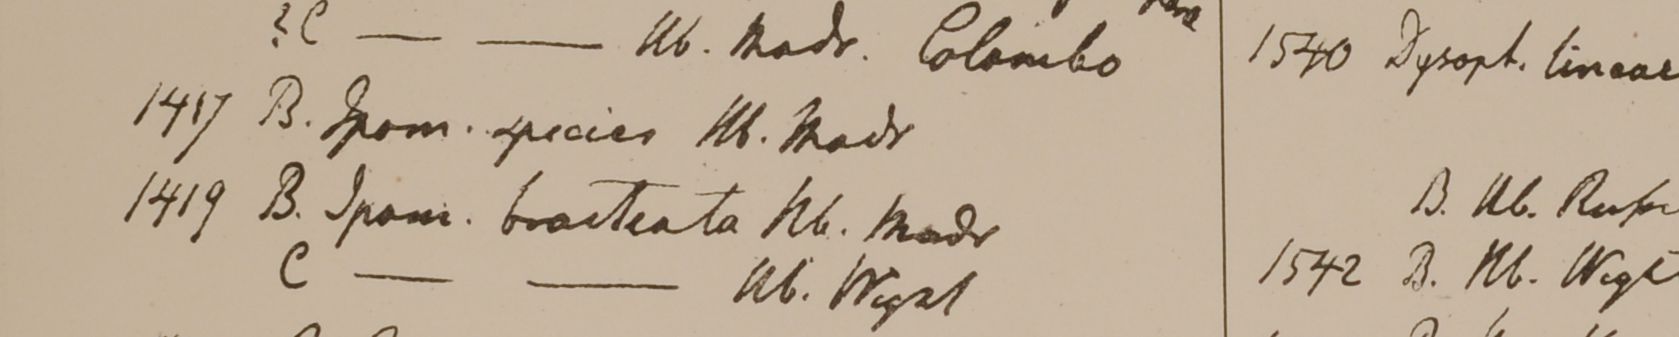 ?C — — Hb. Madr. Colombo
1417 B. Ipom. species Hb. Madr
1419 B. Ipom. bracteata Hb. Madr
C — — Hb. Wight
1540 Dysoph. linear
B. Hb. Russ
1542 B. Hb. Wight